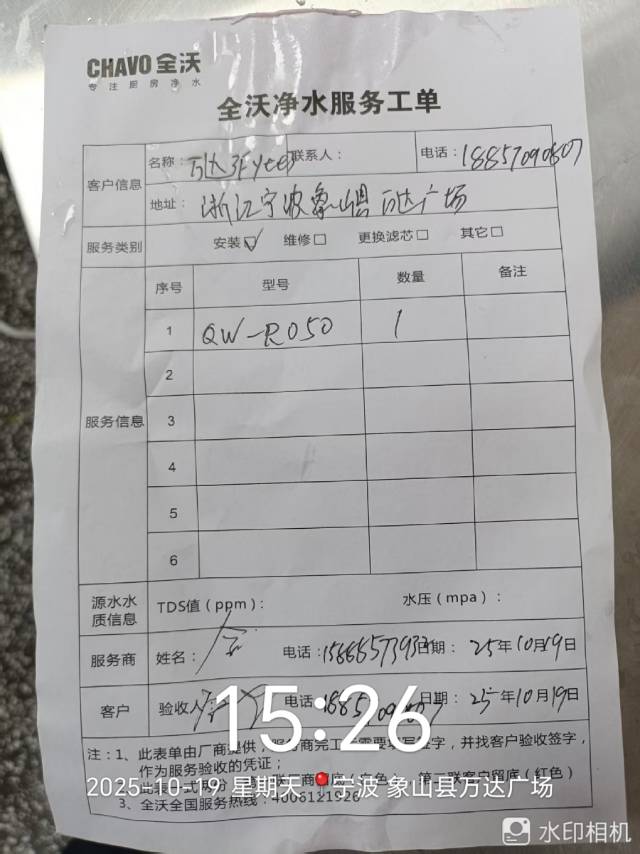 CHAVO 全沃
专注厨房净水
全沃净水服务工单
客户信息
名称：万达3F 联系人： 电话：18857090807
地址：浙江宁波象山县万达广场
服务类别 安装☑ 维修□ 更换滤芯□ 其它□
服务信息
序号 型号 数量 备注
1 QW-RO50 1
2
3
4
5
6
源水水质信息 TDS值（ppm）： 水压（mpa）：
服务商 姓名： 电话： 日期：25年10月19日
客户 验收人 电话 日期：25年10月19日
15:26
注：1、此表单由厂商提供，服务商完工 需要 写签字，并找客户验收签字，
作为服务验收的凭证；
第二联客户留底（红色）
2025-10-19 星期天 宁波 象山县万达广场
3、全沃全国服务热线：4006121926
水印相机